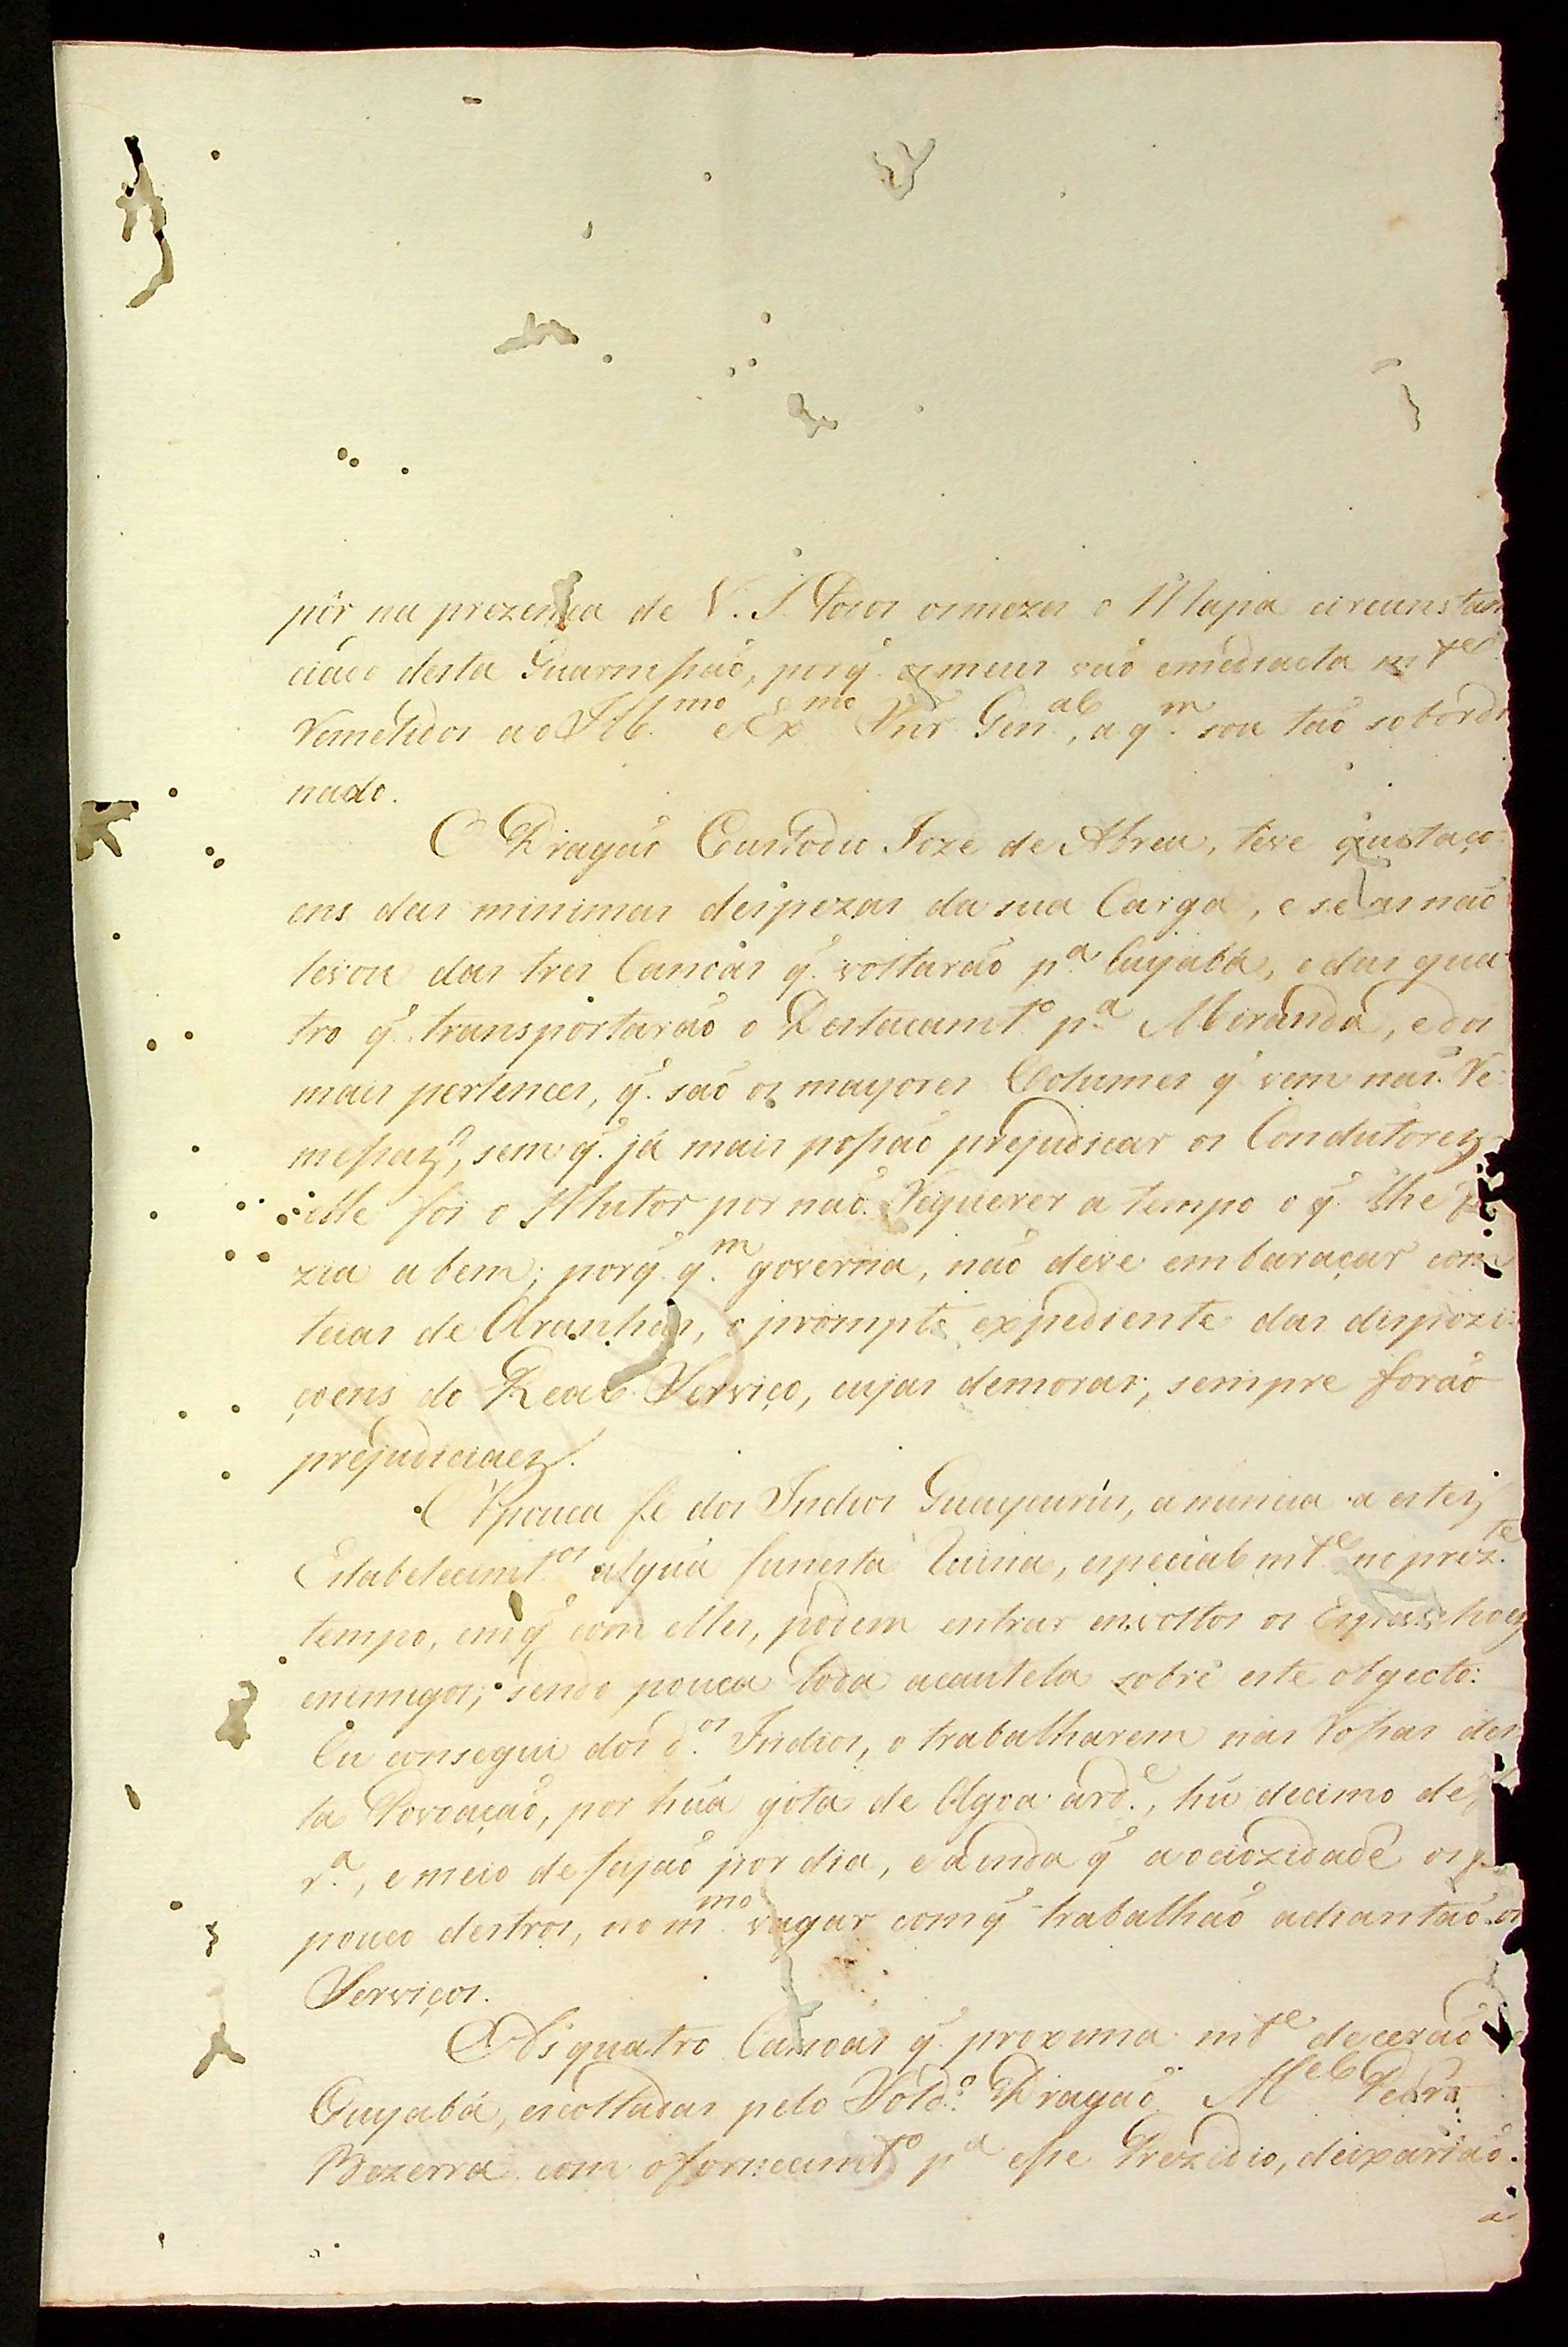 pôr na prezença de V. S. todos os mezes o Mapa circunstan
ciado desta Guarnissaõ, porq̃. os meus vaõ emediacta m.te
remetidos ao Ill.mo e Ex.mo Snr. Gen.al, a q.m sou taõ sobordi
nado.
O Dragaõ Custodio Jozé de Abreu, teve quitaço
ens das minimas despezas da sua Carga, e se as naõ
levou das tres Canoas q̃. voltaraõ p.a Cuyabá, e das qua
tro q̃. transportaraõ o Destacamt.o p.a Miranda, e dos
mais pertences, q̃. saõ os mayores Volumes q̃ vem nas. Re
messaz, sem q̃. já mais possaõ prejudicar os Condutorez
elle foi o Autor por naõ. Requerer a tempo o q̃. lhe
zia a bem; porq̃ q.m governa, naõ deve embaraçar com
teias de Aranhas, o prompto expediente das dispozi
çoens do Real Serviço, cujas demoras, sempre foraõ
prejudiciaez.
A pouca fé dos Indios Guaycurús, anuncia a estez
Estabelecimt.os algũa funesta Ruina, especialmt.e no prez.te
tempo, em q̃ com elles, podem entrar envoltos os Espanhoez
enemigos; sendo pouca toda acautela sobre este obgecto:
Eu consegui dos d.os Indios, o trabalharem nas Rossas des
ta Povoaçaõ, por hũa gota de Agoa ard.e, hũ decimo de
r.a, e meio de fejaõ por dia, e ainda q̃ a ociozidade os
pouco destros, no m.mo vagar com q̃ trabalhaõ adiantaõ os
Serviços.
As quatro Canoas q̃. proxima mt.e deceraõ
Cuyabá, escoltadas pelo Sold.o Dragaõ M.el Pedro
Bezerra com o fornecimt.o p.a esse Prezidio, deixaraõ.